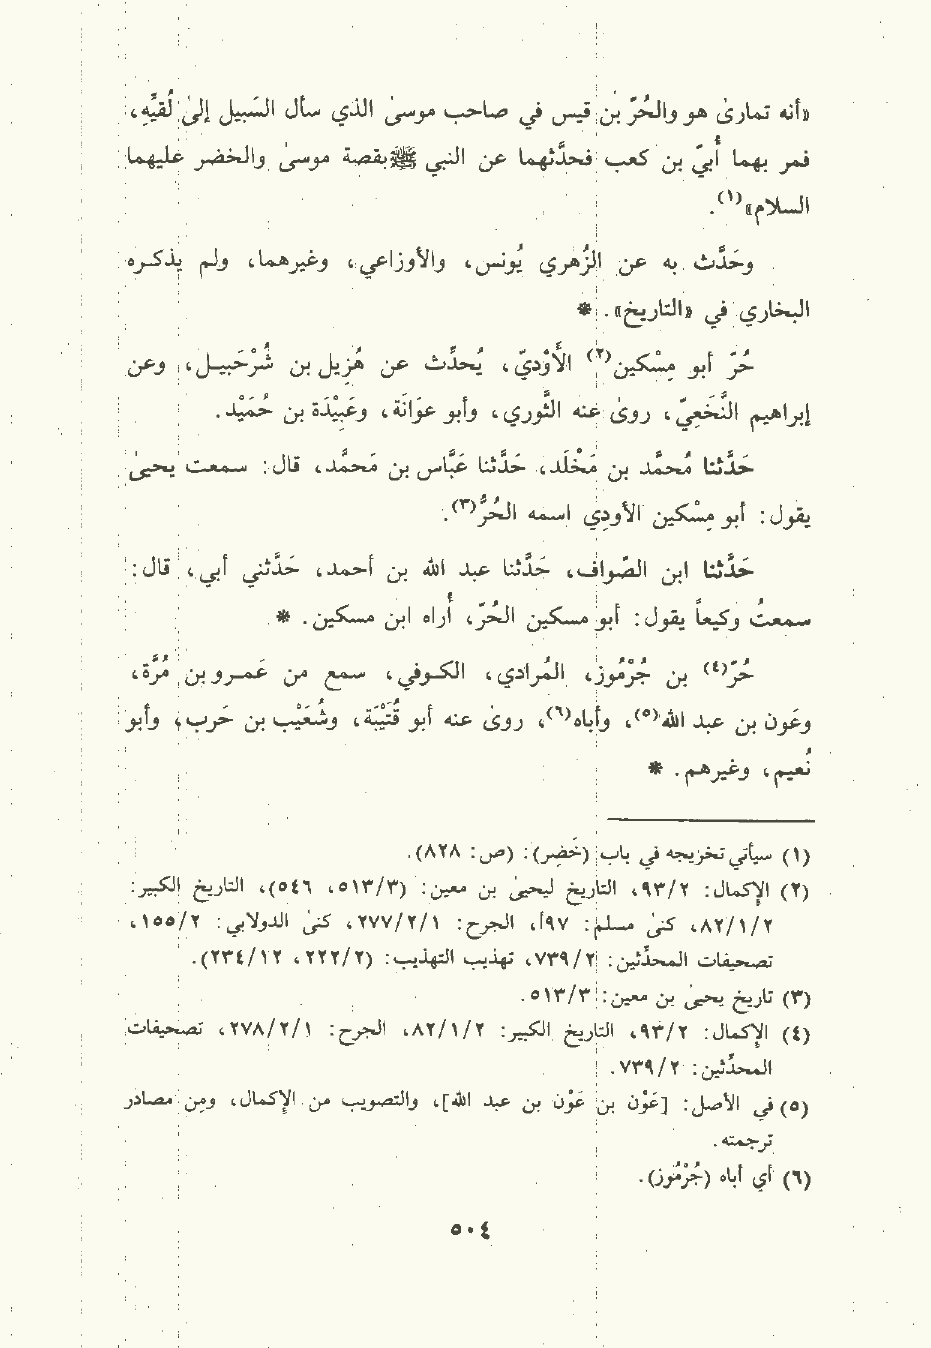 «أنه تمارىٰ هو والحُرّ بْن قيس في صاحب موسىٰ الذي سأل السَبيل إلىٰ لُقيِّهِ،
فمر بهما أُبيّ بن كعب فحدَّثهما عن النبي ﷺ بقصة موسىٰ والخضر عليهما
السلام»(١).
وحَدَّث به عن الزُهري يُونس، والأوزاعي، وغيرهما، ولم يذكره
البخاري في «التاريخ». *
حُرّ أبو مِسْكين(٢) الأَوْديّ، يُحدِّث عن هُزيل بن شُرْحَبيل، وعن
إبراهيم النَّخَعِيّ، روىٰ عنه الثَّوري، وأبو عَوَانَة، وعَبِيْدَة بن حُمَيْد.
حَدَّثنا مُحمَّد بن مَخْلَد، حَدَّثنا عَبَّاس بن مَحمَّد، قال: سمعت يحيىٰ
يقول: أبو مِسْكين الأودِي اسمه الحُرُّ(٣).
حَدَّثنا ابن الصّواف، حَدَّثنا عبد الله بن أحمد، حَدَّثني أبي، قال:
سمعتُ وكيعاً يقول: أبو مسكين الحُرّ، أُراه ابن مسكين. *
حُرّ(٤) بن جُرْمُوز، المُرادي، الكوفي، سمع من عَمرو بن مُرَّة،
وعَون بن عبد الله(٥)، وأباه(٦)، روىٰ عنه أبو قُتَيْبَة، وشُعَيْب بن حَرب، وأبو
نُعيم، وغيرهم. *
(١) سيأتي تخريجه في باب (خَضِر): (ص: ٨٢٨).
(٢) الإكمال: ٩٣/٢، التاريخ ليحيىٰ بن معين: (٥١٣/٣، ٥٤٦)، التاريخ الكبير:
٨٢/١/٢، كنىٰ مسلم: ٩٧أ، الجرح: ٢٧٧/٢/١، كنىٰ الدولابي: ١٥٥/٢،
تصحيفات المحدِّثين: ٧٣٩/٢، تهذيب التهذيب: (٢٢٢/٢، ٢٣٤/١٢).
(٣) تاريخ يحيىٰ بن معين: ٥١٣/٣.
(٤) الإكمال: ٩٣/٢، التاريخ الكبير: ٨٢/١/٢، الجرح: ٢٧٨/٢/١، تصحيفات
المحدِّثين: ٧٣٩/٢.
(٥) في الأصل: [عَوْن بن عَوْن بن عبد الله]، والتصويب من الإكمال، ومِن مصادر
ترجمته.
(٦) أي أباه (جُرْمُوز).
٥٠٤